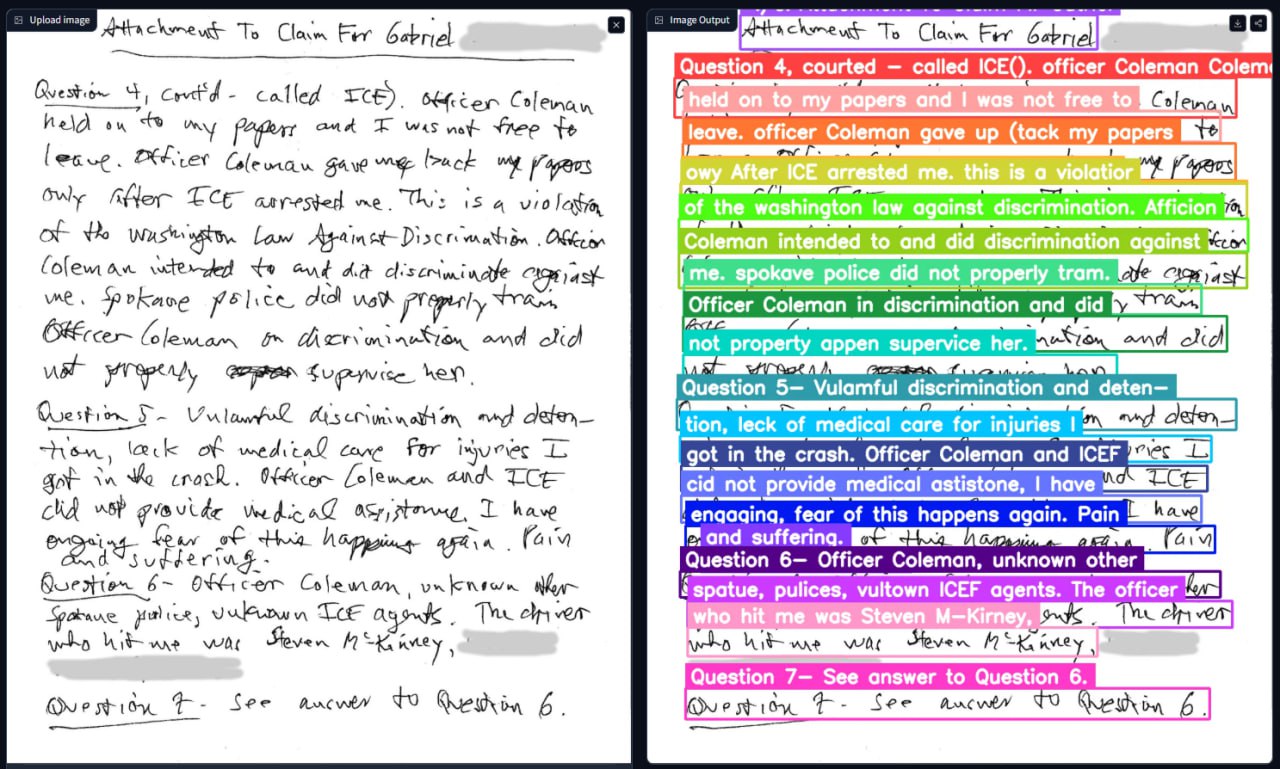 Upload image
Attachment To Claim For Gabriel
Question 4, cont'd - called ICE). Officer Coleman
held on to my papers and I was not free to
leave. Officer Coleman gave me back my papers
only After ICE arrested me. This is a violation
of the Washington Law Against Discrimination. Officer
Coleman intended to and did discriminate against
me. Spokane police did not properly train
Officer Coleman on discrimination and did
not properly supervise her.
Question 5- Unlawful discrimination and deten-
tion, lack of medical care for injuries I
got in the crash. Officer Coleman and ICE
did not provide medical assistance. I have
ongoing fear of this happening again. Pain
and suffering.
Question 6- Officer Coleman, unknown other
Spokane police, unknown ICE agents. The driver
who hit me was Steven McKinney,
Question 7- See answer to Question 6.
Image Output
Attachment To Claim For Gabriel
Question 4, courted - called ICE(). officer Coleman Colem
held on to my papers and I was not free to
Coleman
leave. officer Coleman gave up (tack my papers
to
owy After ICE arrested me. this is a violatior
my papers
of the washington law against discrimination. Afficion
Coleman intended to and did discrimination against
me. spokave police did not properly tram.
Officer Coleman in discrimination and did
not property appen supervice her.
and did
Question 5- Vulamful discrimination and deten-
and deten-
tion, leck of medical care for injuries I
got in the crash. Officer Coleman and ICEF
cid not provide medical astistone, I have
and ICE
engaging, fear of this happens again. Pain
I have
and suffering.
of this happening again. Pain
Question 6- Officer Coleman, unknown other
spatue, pulices, vultown ICEF agents. The officer
who hit me was Steven M-Kirney,
The driver
who hit me was Steven McKinney,
Question 7- See answer to Question 6.
Question 7- See answer to Question 6.